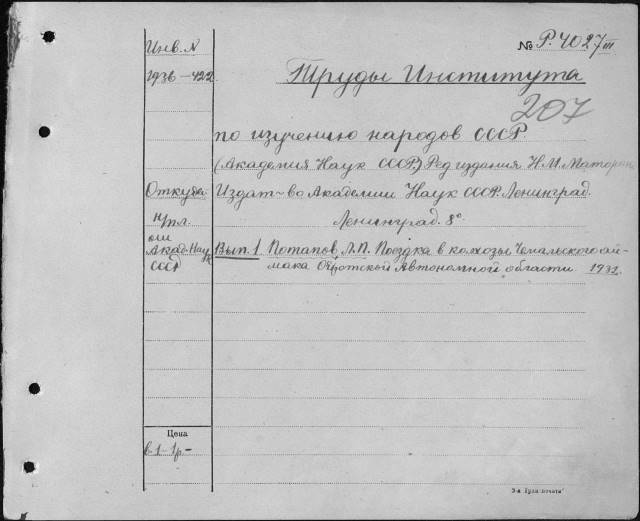 Инв. N
№ Р. 4027 III
1936-422
Труды Института
207
по изучению народов СССР.
(Академия Наук СССР.) Ред издания Н.М. Маторин
Издат-во Академии Наук СССР. Ленинград.
Ленинград. 8°
Акад. Наук
СССР
Вып. 1 Потапов, Л.П. Поездка в колхозы Чемальского ай-
мака Ойротской Автономной области 1932.
Цена
в. 1-1р-